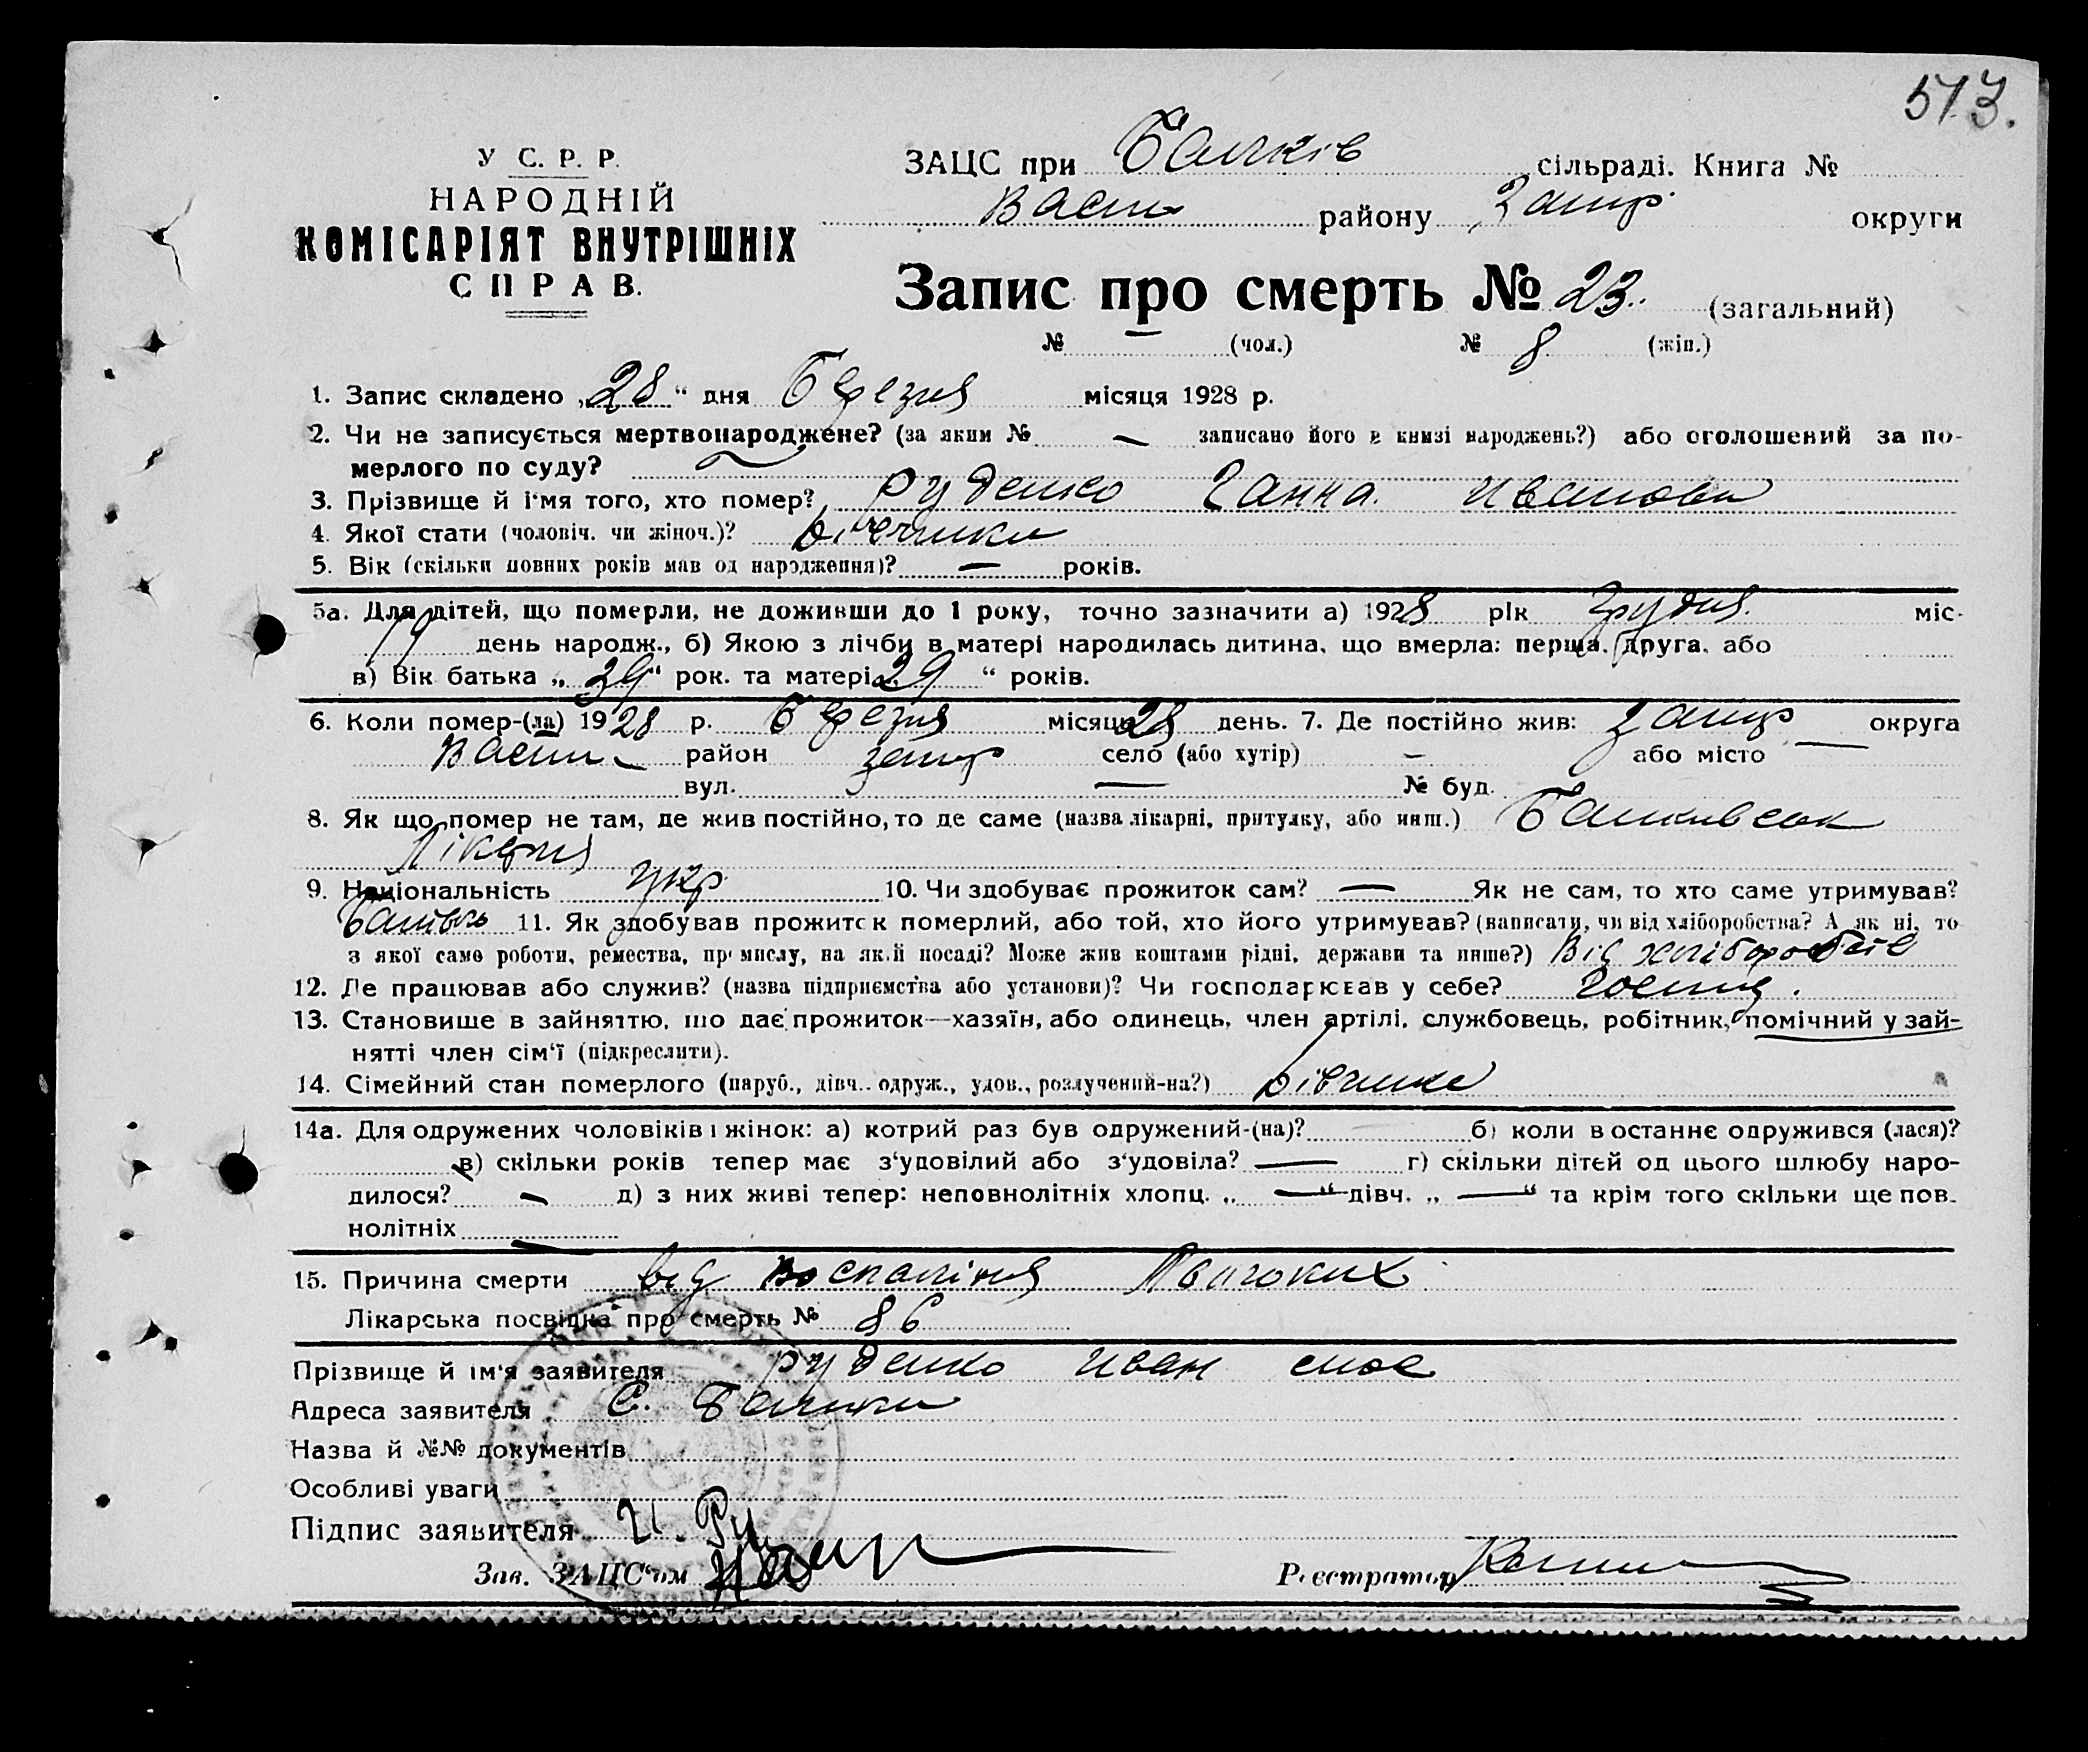 513.
У С. Р. Р.
НАРОДНІЙ
КОМІСАРІЯТ ВНУТРІШНІХ
СПРАВ.
ЗАЦС при Балків сільраді. Книга №
Васил району Запор округи
Запис про смерть № 23. (загальний)
№ — (чол.) № 8 (жін.)
1. Запис складено „28“ дня Березня місяця 1928 р.
2. Чи не записується мертвонароджене? (за яким № — записано його в книзі народжень?) або оголошений за по-
мерлого по суду? —
3. Прізвище й і'мя того, хто помер? Руденко Ганна Иванова
4. Якої стати (чоловіч. чи жіноч.)? Дівчинка
5. Вік (скільки повних років мав од народження)? — років.
5а. Для дітей, що померли, не доживши до 1 року, точно зазначити а) 1928 рік Грудня міс-
19 день народж., б) Якою з лічби в матері народилась дитина, що вмерла: перша, друга, або
в) Вік батька „29“ рок. та матері „29“ років.
6. Коли помер-(ла) 1928 р. Березня місяця 28 день. 7. Де постійно жив: Запор округа
Васил район село (або хутір) — або місто —
вул. — № буд.
8. Як що помер не там, де жив постійно, то де саме (назва лікарні, притулку, або инш.) Балківськ
Лікарня
9. Національність укр 10. Чи здобуває прожиток сам? — Як не сам, то хто саме утримував?
Батько 11. Як здобував прожиток померлий, або той, хто його утримував? (написати, чи від хліборобства? А як ні, то
з якої саме роботи, ремества, промислу, на якій посаді? Може жив коштами рідні, держави та инше?) Від хліборобств
12. Де працював або служив? (назва підприємства або установи)? Чи господарював у себе?
13. Становище в зайняттю, що дає прожиток—хазяїн, або одинець, член артілі, службовець, робітник, помічний у зай-
нятті член сім'ї (підкреслити).
14. Сімейний стан померлого (паруб., дівч., одруж., удов., розлучений-на?) Дівчинка
14а. Для одружених чоловіків і жінок: а) котрий раз був одружений-(на)? б) коли в останнє одружився (лася)?
в) скільки років тепер має з'удовілий або з'удовіла? — г) скільки дітей од цього шлюбу наро-
дилося? — д) з них живі тепер: неповнолітніх хлопц. „—“ дівч. „—“ та крім того скільки ще пов-
нолітніх —
15. Причина смерти від воспаління Льогких
Лікарська посвідка про смерть № 86
Прізвище й ім'я заявителя Руденко Иван
Адреса заявителя С. Балки
Назва й №№ документів
Особливі уваги
Підпис заявителя И. Ру
Зав. ЗАЦС'ом
Реєстратор